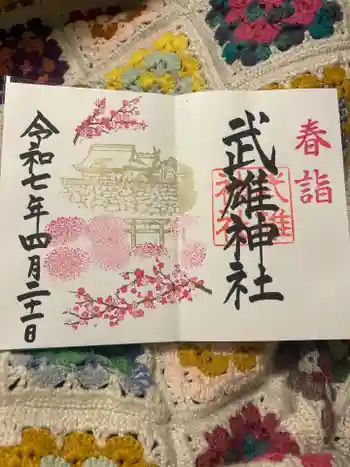 春詣
武雄神社
武雄
神社
令和七年四月二十一日